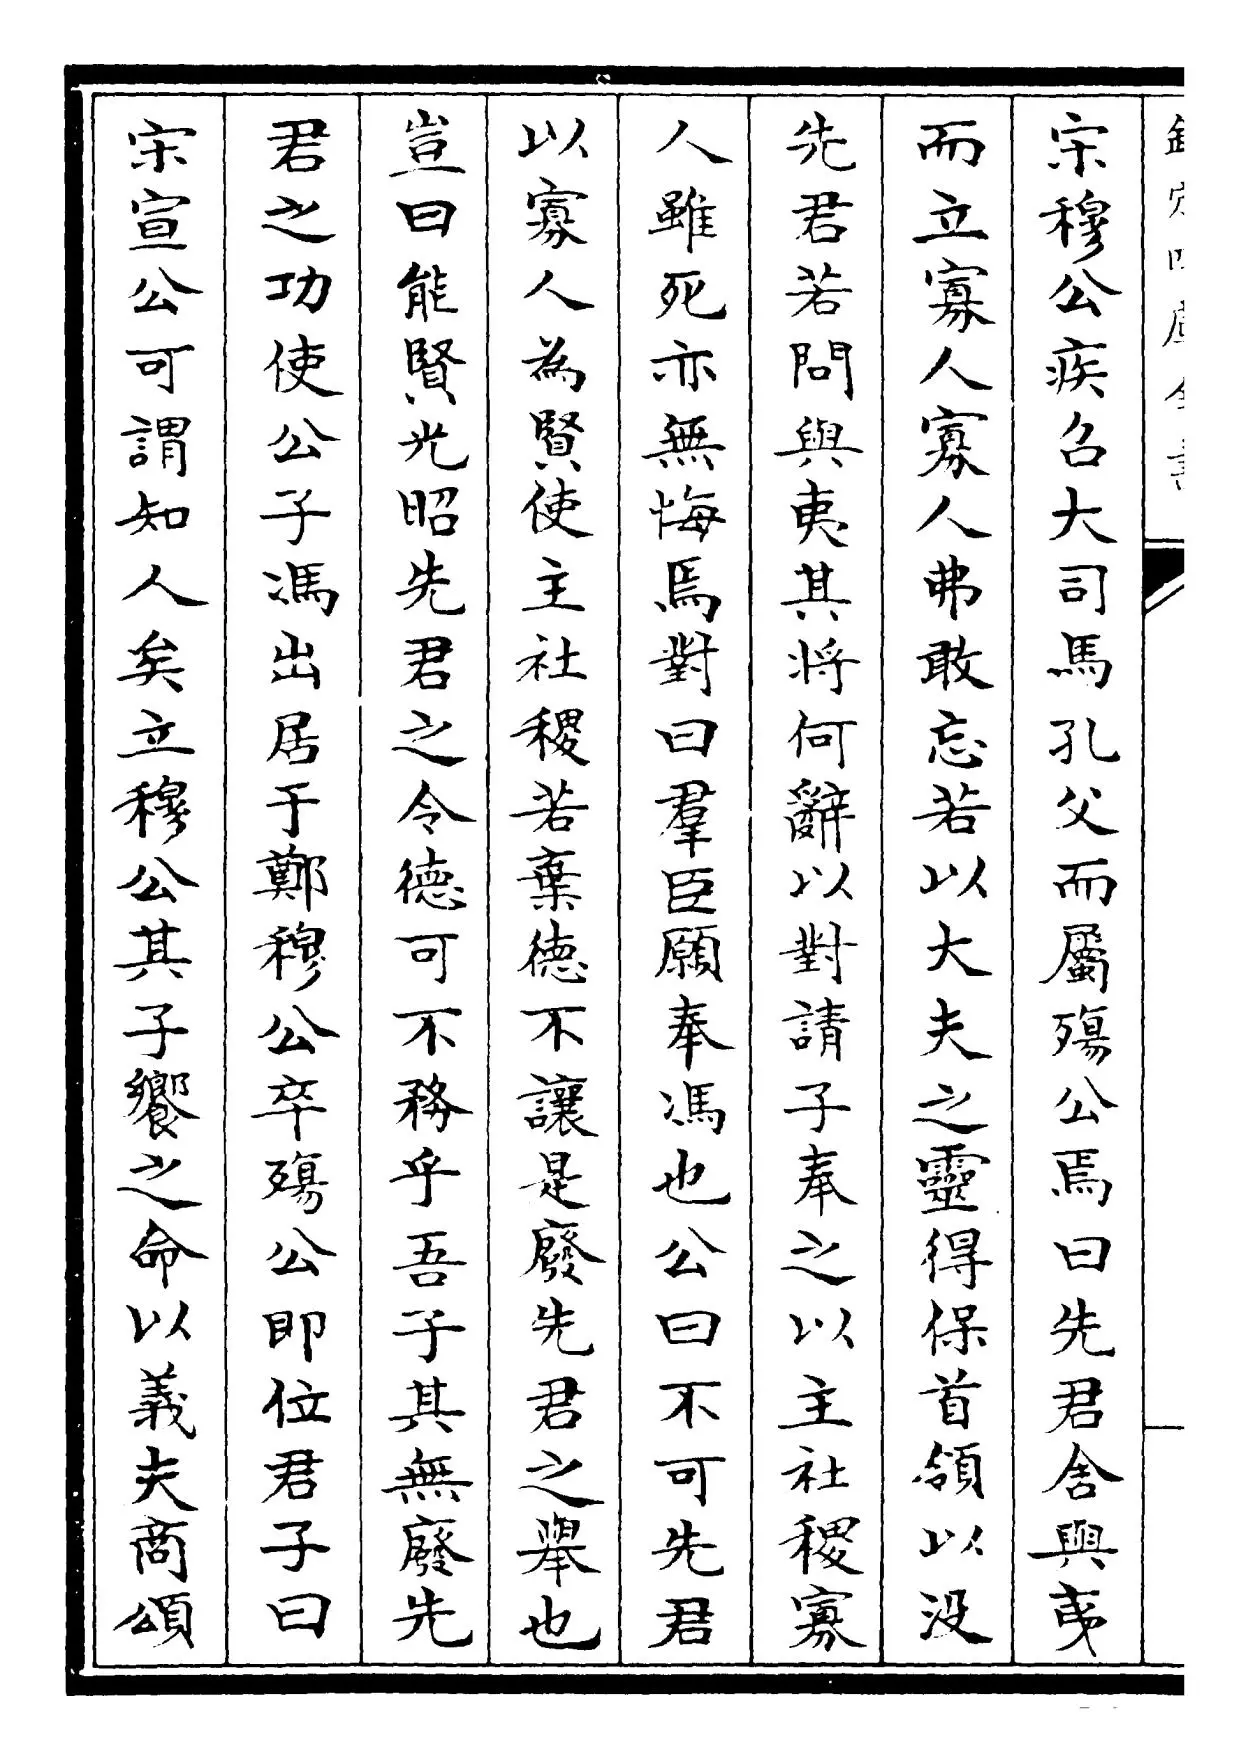 欽定四庫全書
宋穆公疾召大司馬孔父而屬殤公焉曰先君舍與夷
而立寡人寡人弗敢忘若以大夫之靈得保首領以没
先君若問與夷其將何辭以對請子奉之以主社稷寡
人雖死亦無悔焉對曰羣臣願奉馮也公曰不可先君
以寡人為賢使主社稷若棄德不讓是廢先君之舉也
豈曰能賢光昭先君之令德可不務乎吾子其無廢先
君之功使公子馮出居于鄭穆公卒殤公即位君子曰
宋宣公可謂知人矣立穆公其子饗之命以義夫商頌